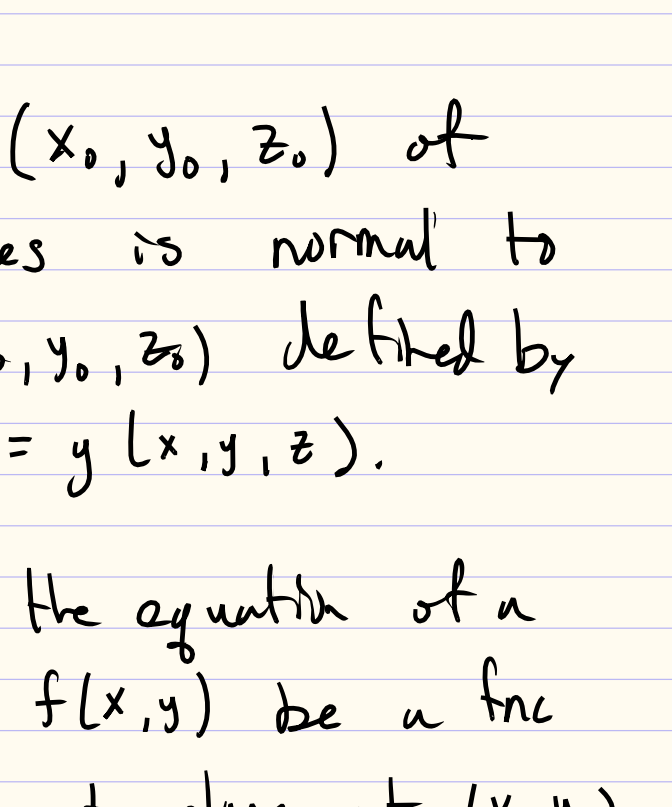 (x₀, y₀, z₀) of
es is normal to
, y₀, z₀) defined by
= y (x, y, z).
the equation of a
f(x,y) be a fnc